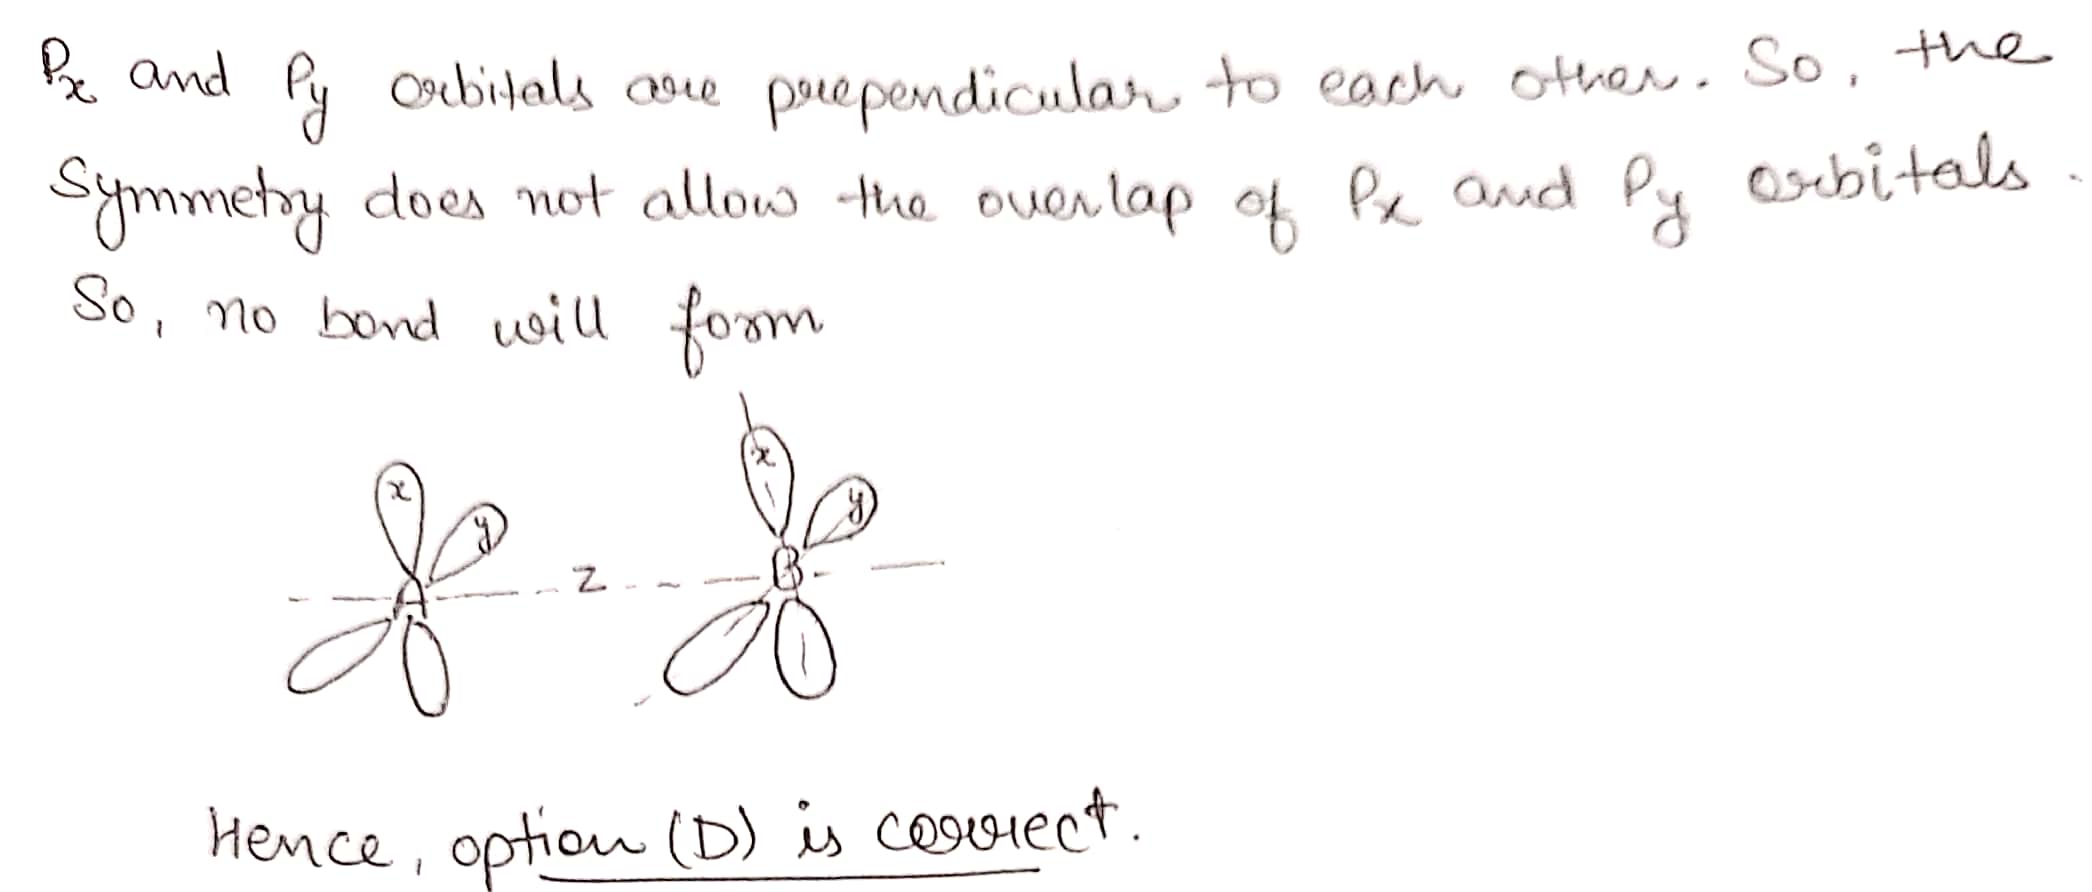 Px and Py orbitals are perpendicular to each other. So, the
Symmetry does not allow the overlap of Px and Py orbitals.
So, no bond will form
x y A z x y B
Hence, option (D) is correct.